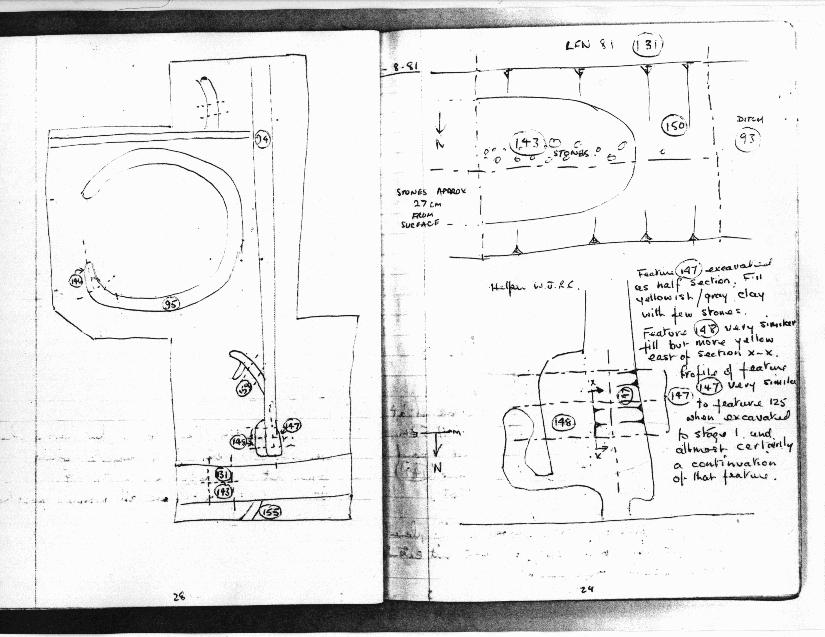 94
144
95
154
147
148
131
143
155
28
8-81
LFN 81 131
150
DITCH
93
N
143
STONES
STONES APPROX
27 CM
FROM
SURFACE
Helper W.J.R.C.
Feature 147 excavated
as half section. Fill
yellowish/gray clay
with few stones.
Feature 148 very similar
fill but more yellow
east of section x-x.
Profile of feature
147 very similar
to feature 125
when excavated
to stage 1, and
almost certainly
a continuation
of that feature.
x
147
147
148
x
N
29